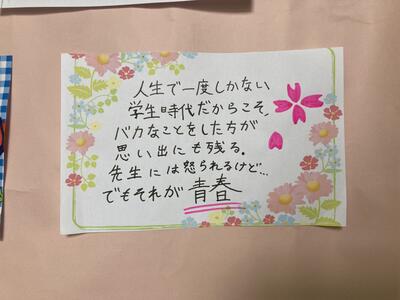 人生で一度しかない
学生時代だからこそ、
バカなことをした方が
思い出にも残る。
先生には怒られるけど…
でもそれが青春